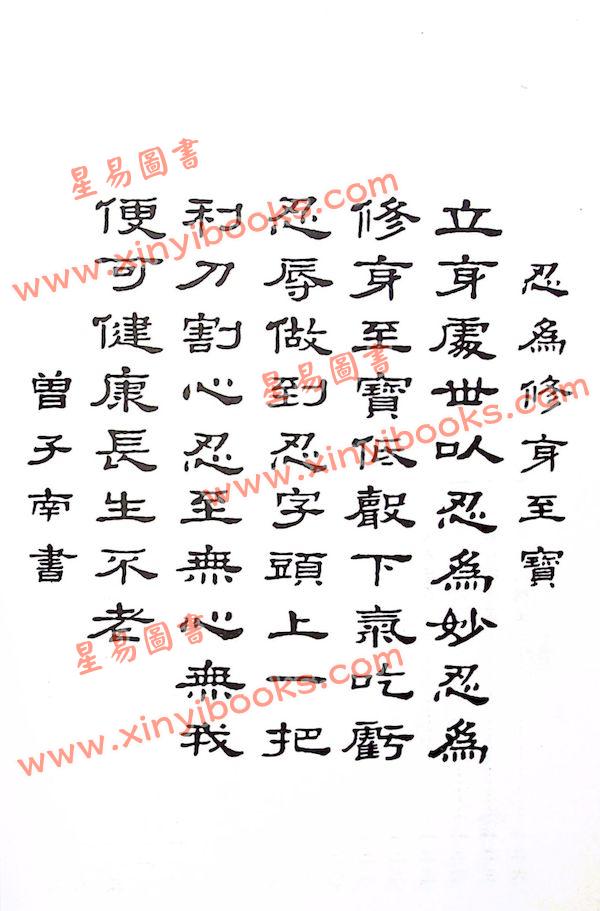 忍為修身至寶
立身處世以忍為妙忍為
修身至寶低聲下氣吃虧
忍辱做到忍字頭上一把
利刀割心忍至無心無我
便可健康長生不老
曾子南書
星易圖書
www.xinyibooks.com
星易圖書
www.xinyibooks.com
星易圖書
www.xinyibooks.com